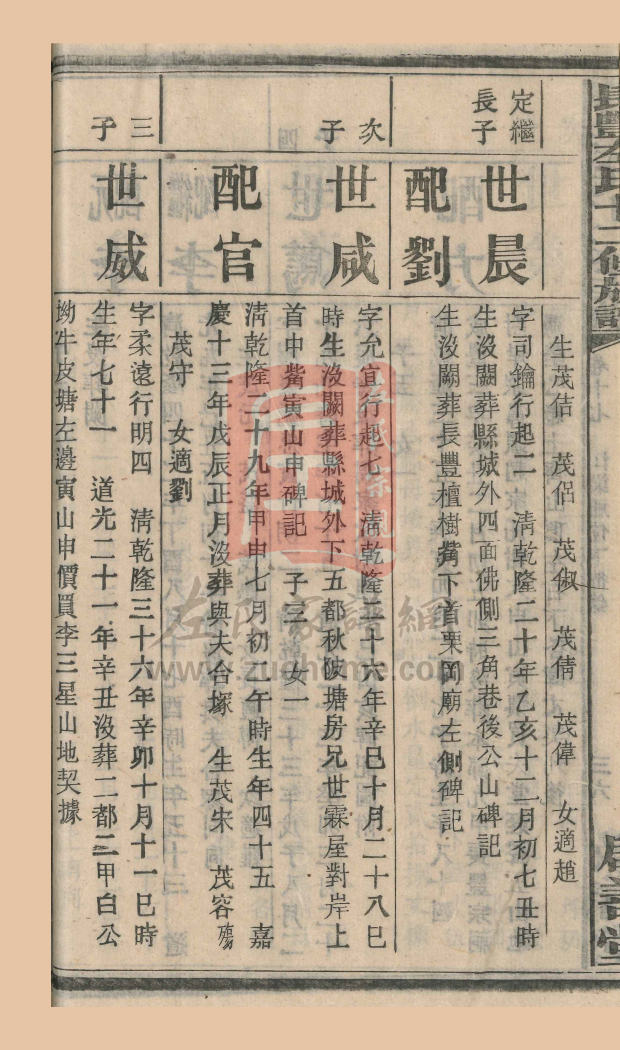 長豐左氏十二修族譜
生茂佶　茂侶　茂俶　茂倩　茂偉　女適趙
定繼
長子
世晨
配劉
字司鑰行起二　清乾隆二十年乙亥十二月初七丑時
生沒闕葬縣城外四面佛側三角巷後公山碑記
生沒闕葬長豐檀樹觜下首栗岡廟左側碑記
次
子
世咸
配官
字允宜行起七　清乾隆二十六年辛巳十月二十八巳
時生沒闕葬縣城外下五都秋陂塘房兄世霖屋對岸上
首中觜寅山申碑記　子三　女一
清乾隆二十九年甲申七月初二午時生年四十五　嘉
慶十三年戊辰正月沒葬與夫合塚　生茂宋　茂容殤
茂守　女適劉
三
子
世威
字柔遠行明四　清乾隆三十六年辛卯十月十一巳時
生年七十一　道光二十一年辛丑沒葬二都二甲白公
坳牛皮塘左邊寅山申價買李三星山地契據
左氏家譜網
www.zuojiahome.com